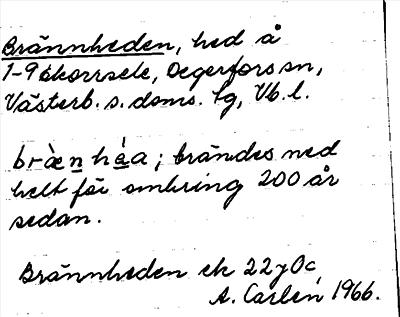 Brännheden, hed å
1-9 Ekorrsele, Degerfors sn,
Västerb. s. doms. lg, Vb. l.
bràen háa; brändes ned
helt för omkring 200 år
sedan.
Brännheden ek 22y0c
A. Carlén 1966.